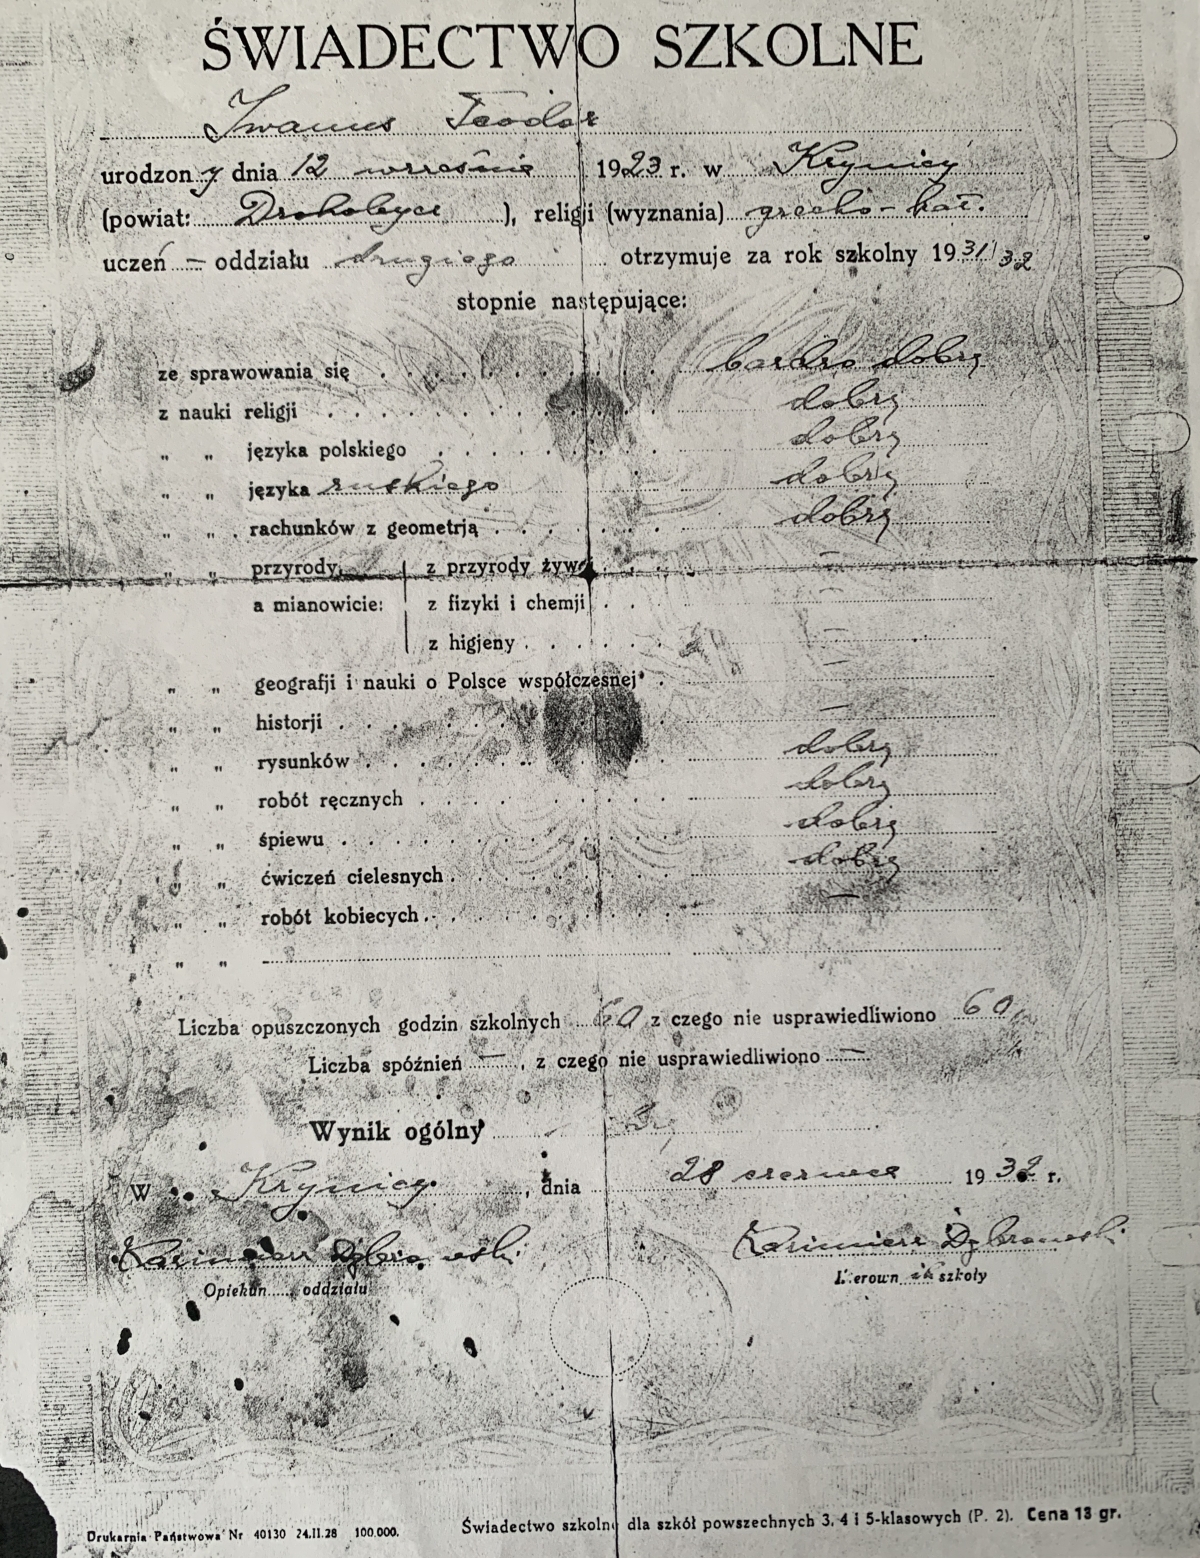 ŚWIADECTWO SZKOLNE
Iwanus Teodor
urodzony dnia 12 września 1923 r. w Krynicy
(powiat: Drohobycz), religji (wyznania) grecko-kat.
uczeń — oddziału drugiego otrzymuje za rok szkolny 1931/32
stopnie następujące:
ze sprawowania się bardzo dobry
z nauki religji dobry
" " języka polskiego dobry
" " języka ruskiego dobry
" " rachunków z geometrją dobry
" " przyrody, z przyrody żywej —
a mianowicie: z fizyki i chemji —
z higjeny —
" " geografji i nauki o Polsce współczesnej —
" " historji —
" " rysunków dobry
" " robót ręcznych dobry
" " śpiewu dobry
" " ćwiczeń cielesnych dobry
" " robót kobiecych —
" "
Liczba opuszczonych godzin szkolnych 60 z czego nie usprawiedliwiono 60,
Liczba spóźnień —, z czego nie usprawiedliwiono —
Wynik ogólny
W Krynicy, dnia 28 czerwca 1932 r.
Kazimierz Dąbrowski Kazimierz Dąbrowski
Opiekun oddziału Kierownik szkoły
Drukarnia Państwowa Nr 40130 24.II.28 100.000. Świadectwo szkolne dla szkół powszechnych 3, 4 i 5-klasowych (P. 2). Cena 13 gr.